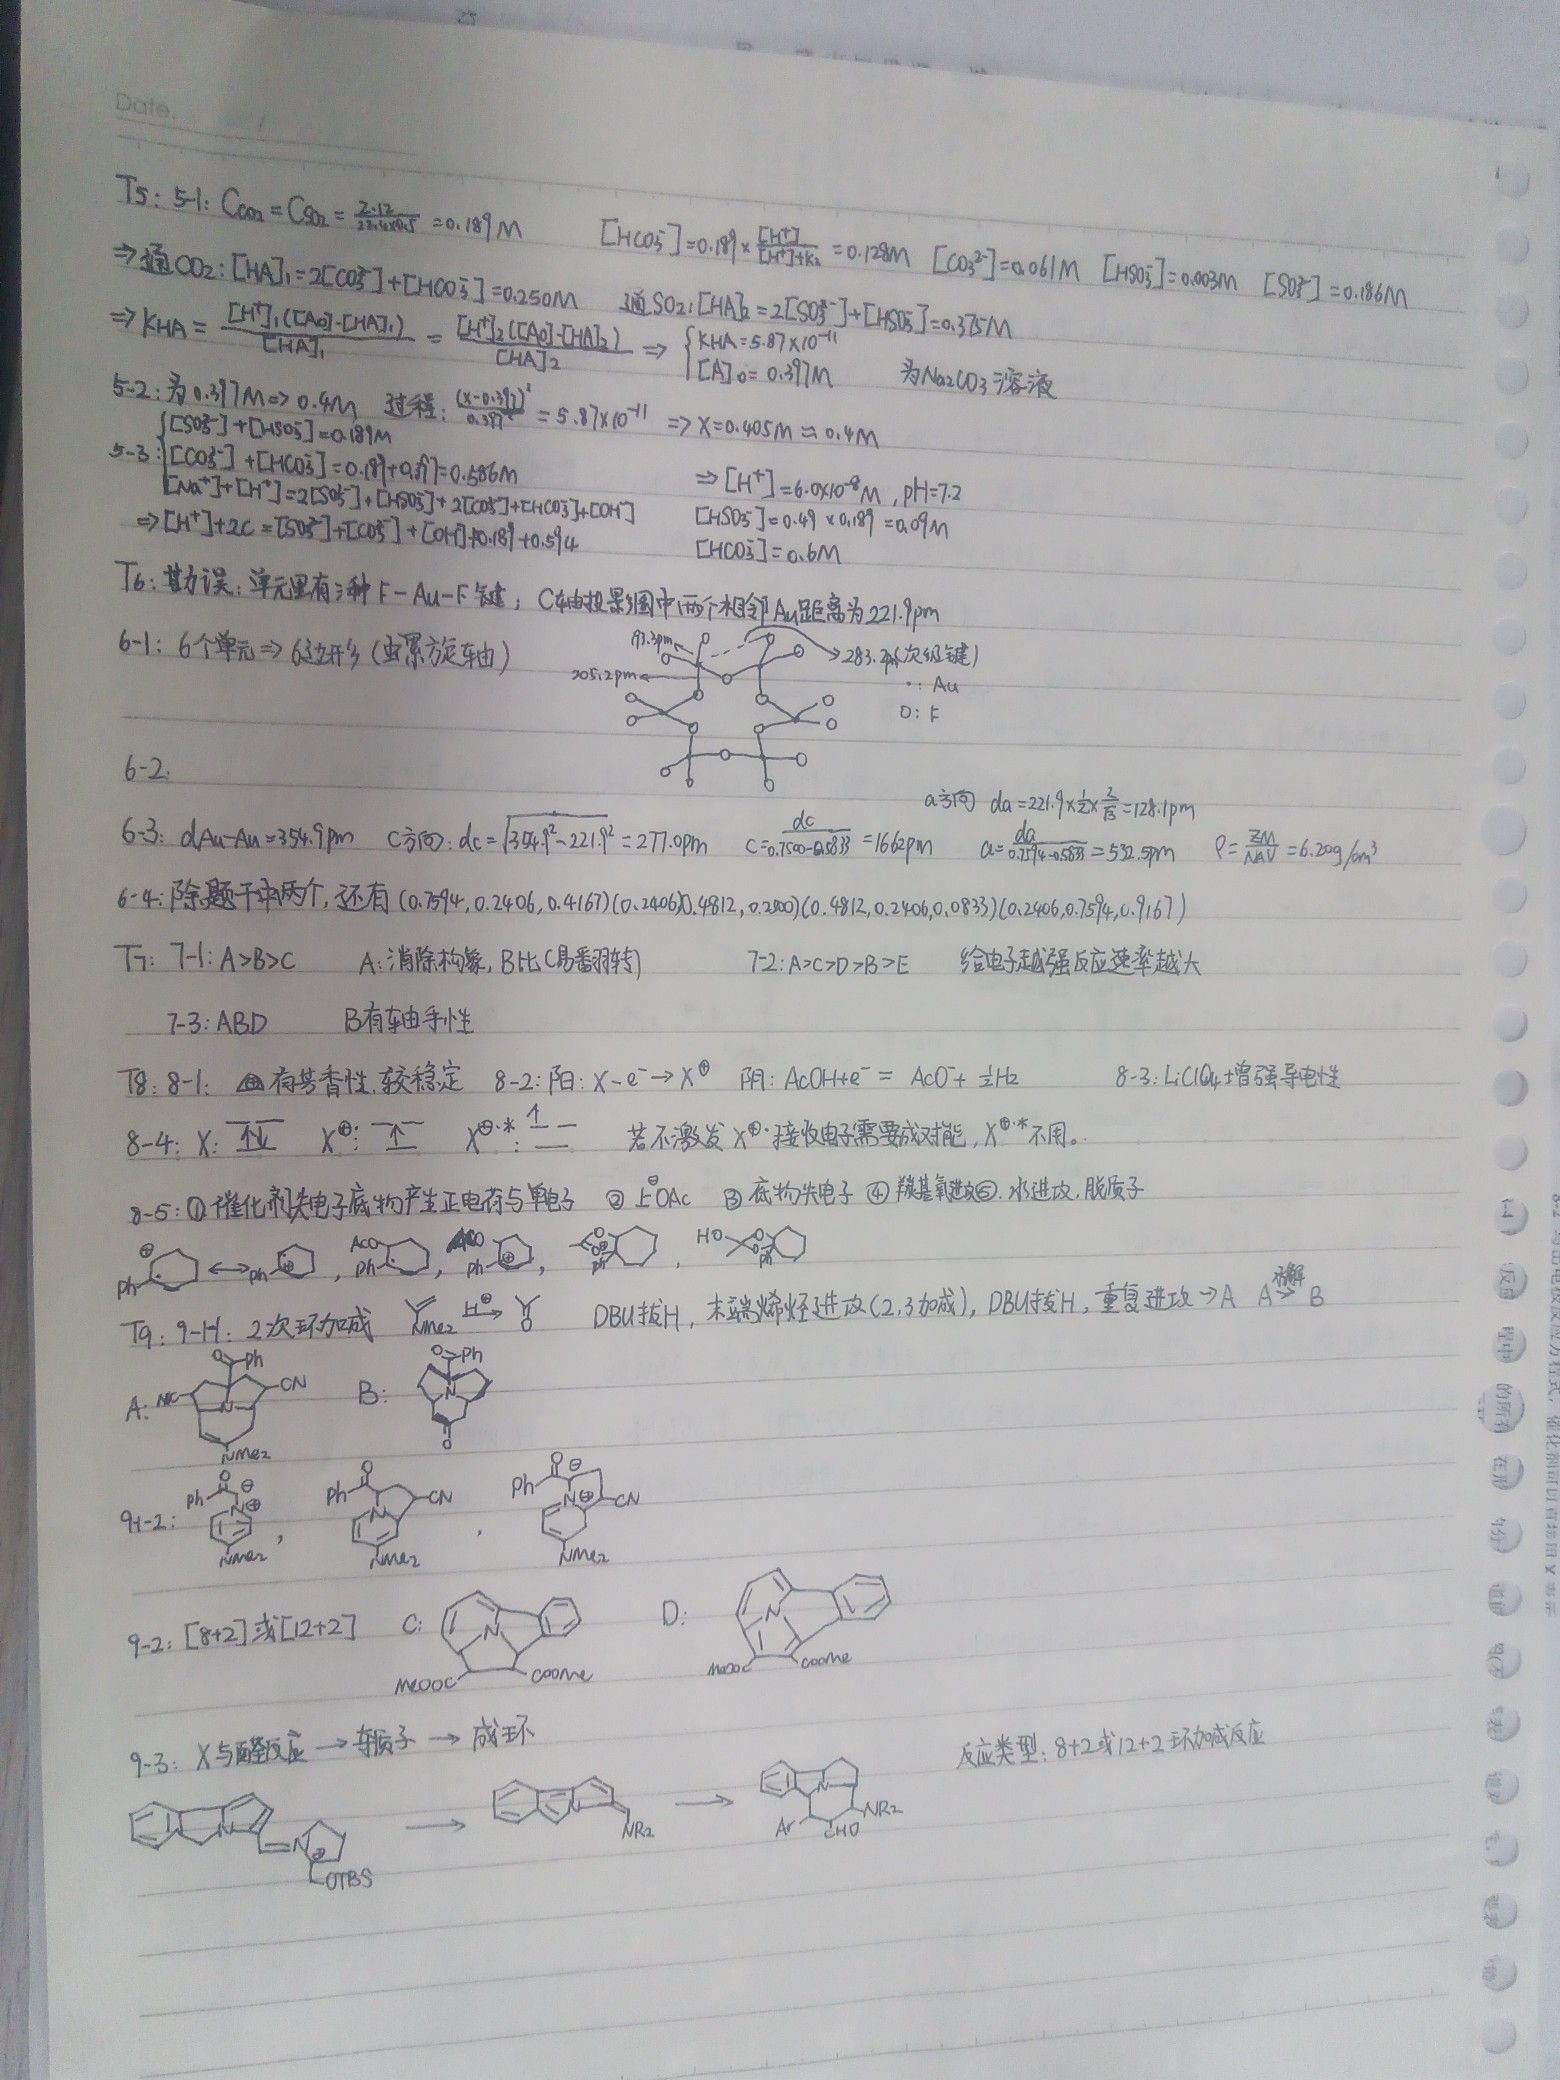 Date.
T5: 5-1: Cco₂ = Cso₂ = 2.12/(22.4×0.5) = 0.189M [HCO₃⁻]=0.189×[H⁺]/([H⁺]+K₂)=0.128M [CO₃²⁻]=0.061M [HSO₃⁻]=0.003M [SO₃²⁻]=0.186M
⇒通CO₂: [HA]₁=2[CO₃²⁻]+[HCO₃⁻]=0.250M 通SO₂: [HA]₂=2[SO₃²⁻]+[HSO₃⁻]=0.375M
⇒ KHA = [H⁺]₁([A]₀-[HA]₁)/[HA]₁ = [H⁺]₂([A]₀-[HA]₂)/[HA]₂ ⇒ { KHA=5.87×10⁻¹¹
[A]₀=0.397M 为Na₂CO₃溶液
5-2: 为0.397M⇒0.4M 过程: (x-0.397)²/0.397 = 5.87×10⁻¹¹ ⇒ x=0.405M≈0.4M
5-3: { [SO₃²⁻]+[HSO₃⁻]=0.189M
[CO₃²⁻]+[HCO₃⁻]=0.189+0.397=0.586M ⇒[H⁺]=6.0×10⁻⁸M, pH=7.2
[Na⁺]+[H⁺]=2[SO₃²⁻]+[HSO₃⁻]+2[CO₃²⁻]+[HCO₃⁻]+[OH⁻] [HSO₃⁻]=0.49×0.189=0.09M
⇒[H⁺]+2C=[SO₃²⁻]+[CO₃²⁻]+[OH⁻]+0.189+0.594 [HCO₃⁻]=0.6M
T6: 勘误: 单元里有三种F-Au-F键; C轴投影图中两个相邻Au距离为221.9pm
6-1: 6个单元⇒6边形(虽累方旋轴)
193.3pm
283.2pm(次级键)
205.2pm
·: Au
O: F
6-2:
a方向 da=221.9×1/2×2/√3=128.1pm
6-3: dAu-Au=354.9pm C方向: dc=√(354.9²-221.9²)=277.0pm C=dc/(0.7500-0.5833)=1662pm a=da/(0.7594-0.5833)=532.5pm ρ=ZM/NAV=6.20g/cm³
6-4: 除题干中两个, 还有(0.7594,0.2406,0.4167)(0.2406,0.4812,0.2500)(0.4812,0.2406,0.0833)(0.2406,0.7594,0.9167)
T7: 7-1: A>B>C A: 消除构象, B比C易翻转 7-2: A>C>D>B>E 给电子越强反应速率越大
7-3: ABD B有轴手性
T8: 8-1: 有芳香性, 较稳定 8-2: 阳: X-e⁻→X⊕ 阴: AcOH+e⁻= AcO⁻+½H₂ 8-3: LiClO₄增强导电性
8-4: X: ↑↓ X⊕: ↑ X⊕·*: ↑ 若不激发X⊕·接收电子需要成对能, X⊕·*不用。
8-5: ①催化剂失电子底物产生正电荷与单电子 ②上⁻OAc ③底物失电子 ④羰基氧进攻⑤.水进攻.脱质子
Ph ↔ Ph , AcO Ph , AcO Ph , Ph , HO Ph
T9: 9-1-1: 2次环加成 NMe₂ H⊕→ O DBU拔H, 末端烯烃进攻(2,3加成), DBU拔H, 重复进攻→A A 水解→ B
A: O Ph NC CN N NMe₂ B: O Ph N O
9-1-2: Ph O ⊖ N⊕ NMe₂ , Ph O N CN NMe₂ , Ph O ⊖ N⊕ CN NMe₂
9-2: [8+2]或[12+2] C: N MeOOC COOMe D: N MeOOC COOMe
9-3: X与醛反应→转质子→成环 反应类型: 8+2或12+2环加成反应
N N⊕ OTBS → N NR₂ → N Ar CHO NR₂